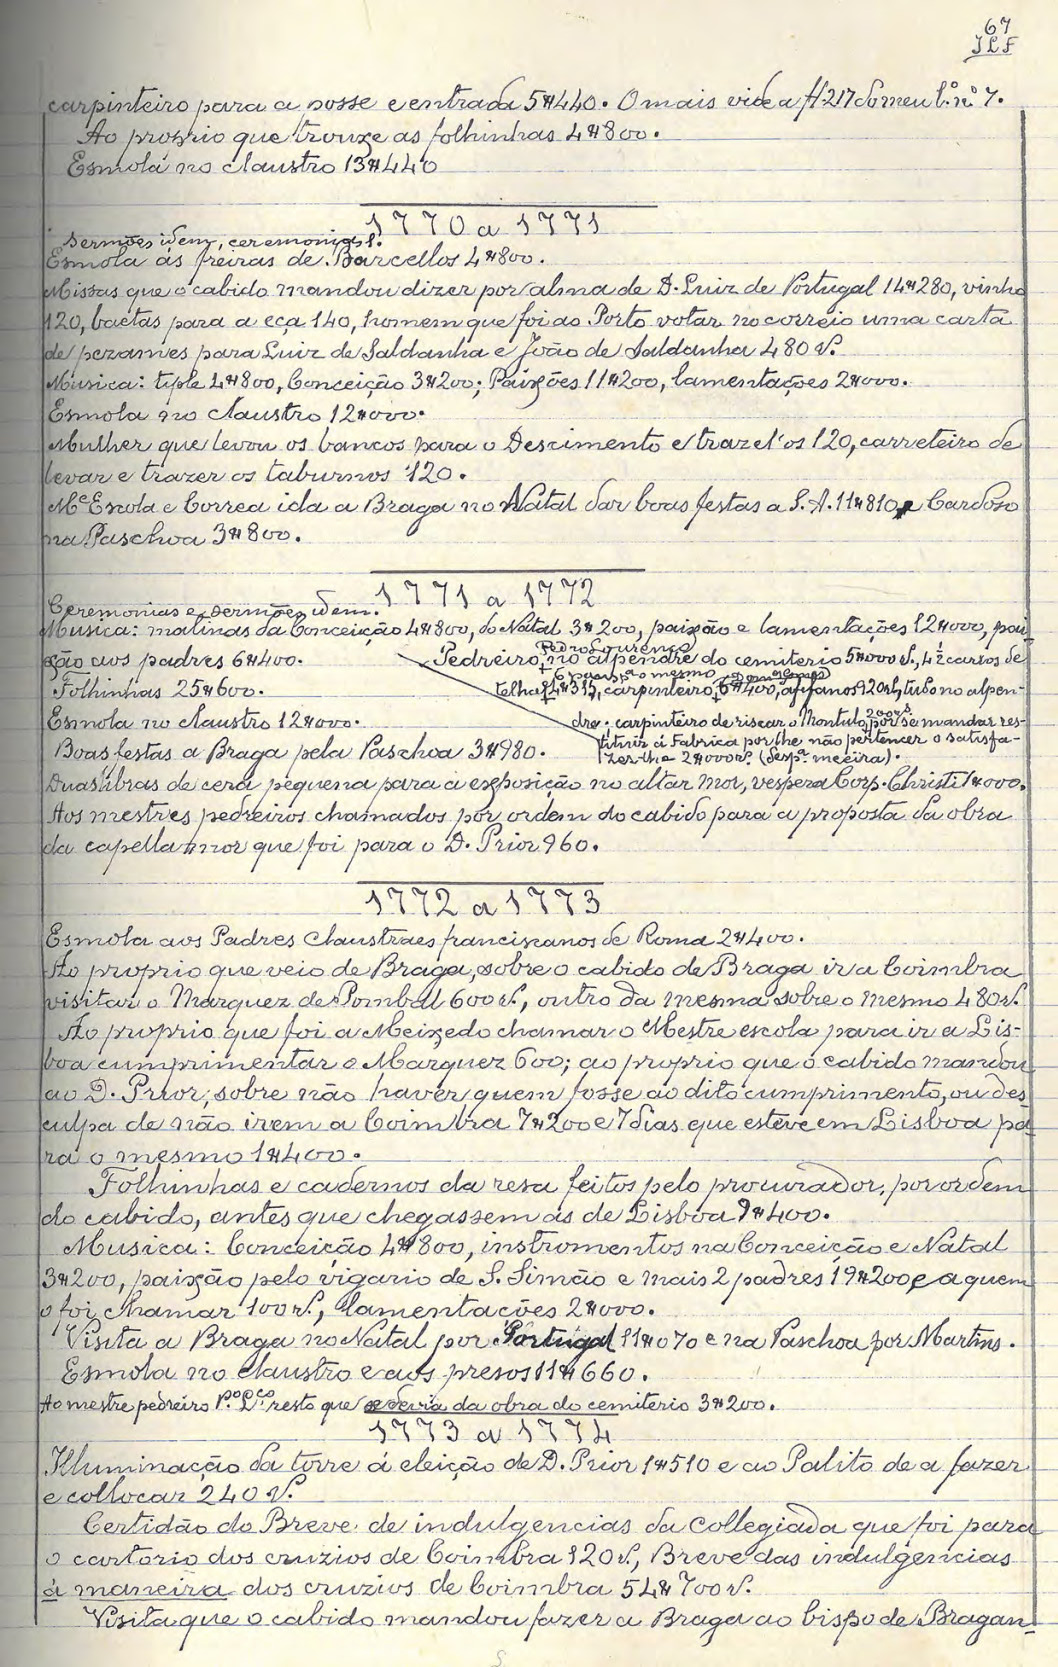 67
JLF
carpinteiro para a posse e entrada 5#440. O mais vide a fl 217 do meu l.º n.º 7.
Ao proprio que trouxe as folhinhas 4#800.
Esmola no claustro 13#440
1770 a 1771
Sermões idem, ceremonias
Esmola ás freiras de Barcellos 4#800.
Missas que o cabido mandou dizer por alma de D. Luiz de Portugal 14#280, vinho
120, baetas para a eça 140, homem que foi ao Porto votar no correio uma carta
de pezames para Luiz de Saldanha e João de Saldanha 480 rs.
Musica: tiple 4#800, Conceição 3#200; Paixões 11#200, lamentações 2#000.
Esmola no claustro 12#000.
Mulher que levou os bancos para o Descimento e trazel-os 120, carreteiro de
levar e trazer os taburnos 120.
M.e Escola e Correa ida a Braga no Natal dar boas festas a S. A. 11#810, e Cardoso
na Paschoa 3#800.
1771 a 1772
Ceremonias e sermões idem.
Musica: matinas da Conceição 4#800, do Natal 3#200, paixão e lamentações 12#000, pai-
xão aos padres 6#400.
Pedro Lourenço
Pedreiro, no alpendre do cemiterio 5#000 rs., 4½ carros de
Folhinhas 25#600.
telha 14#315, carpinteiro 6#400, tudo no alpen-
Esmola no claustro 12#000.
dre; carpinteiro de riscar o Montulo, por se mandar res-
tituir á Fabrica por lhe não pertencer o satisfa-
Boas festas a Braga pela Paschoa 3#980.
zer-lhe 2#000 rs. (desp.ª meeira).
Duas libras de cera pequena para a exposição no altar mor, vespera Corp. Christi 1#000.
Aos mestres pedreiros chamados por ordem do cabido para a proposta da obra
da capella mor que foi para o D. Prior 960.
1772 a 1773
Esmola aos Padres claustraes franciscanos de Roma 2#400.
Ao proprio que veio de Braga, sobre o cabido de Braga ir a Coimbra
visitar o Marquez de Pombal 600 rs., outro da mesma sobre o mesmo 480 rs.
Ao proprio que foi a Meixedo chamar o Mestre escola para ir a Lis-
boa cumprimentar o Marquez 600; ao proprio que o cabido mandou
ao D. Prior, sobre não haver quem fosse ao dito cumprimento, ou des-
culpa de não irem a Coimbra 7#200 e 7 dias que esteve em Lisboa pa-
ra o mesmo 1#400.
Folhinhas e cadernos da resa feitos pelo procurador, por ordem
do cabido, antes que chegassem as de Lisboa 9#400.
Musica: Conceição 4#800, instromentos na Conceição e Natal
3#200, paixão pelo vigario de S. Simão e mais 2 padres 19#200, e a quem
o foi chamar 100 rs., lamentações 2#000.
Visita a Braga no Natal por Portugal 11#070 e na Paschoa por Martins.
Esmola no claustro e aos presos 11#660.
Ao mestre pedreiro P.º L.ço resto que se devia da obra do cemiterio 3#200.
1773 a 1774
Illuminação da torre á eleição de D. Prior 1#510 e ao Palito de a fazer
e collocar 240 rs.
Certidão do Breve de indulgencias da Collegiada que foi para
o cartorio dos cruzios de Coimbra 120 rs., Breve das indulgencias
á maneira dos cruzios de Coimbra 54#700 rs.
Visita que o cabido mandou fazer a Braga ao bispo de Bragan-